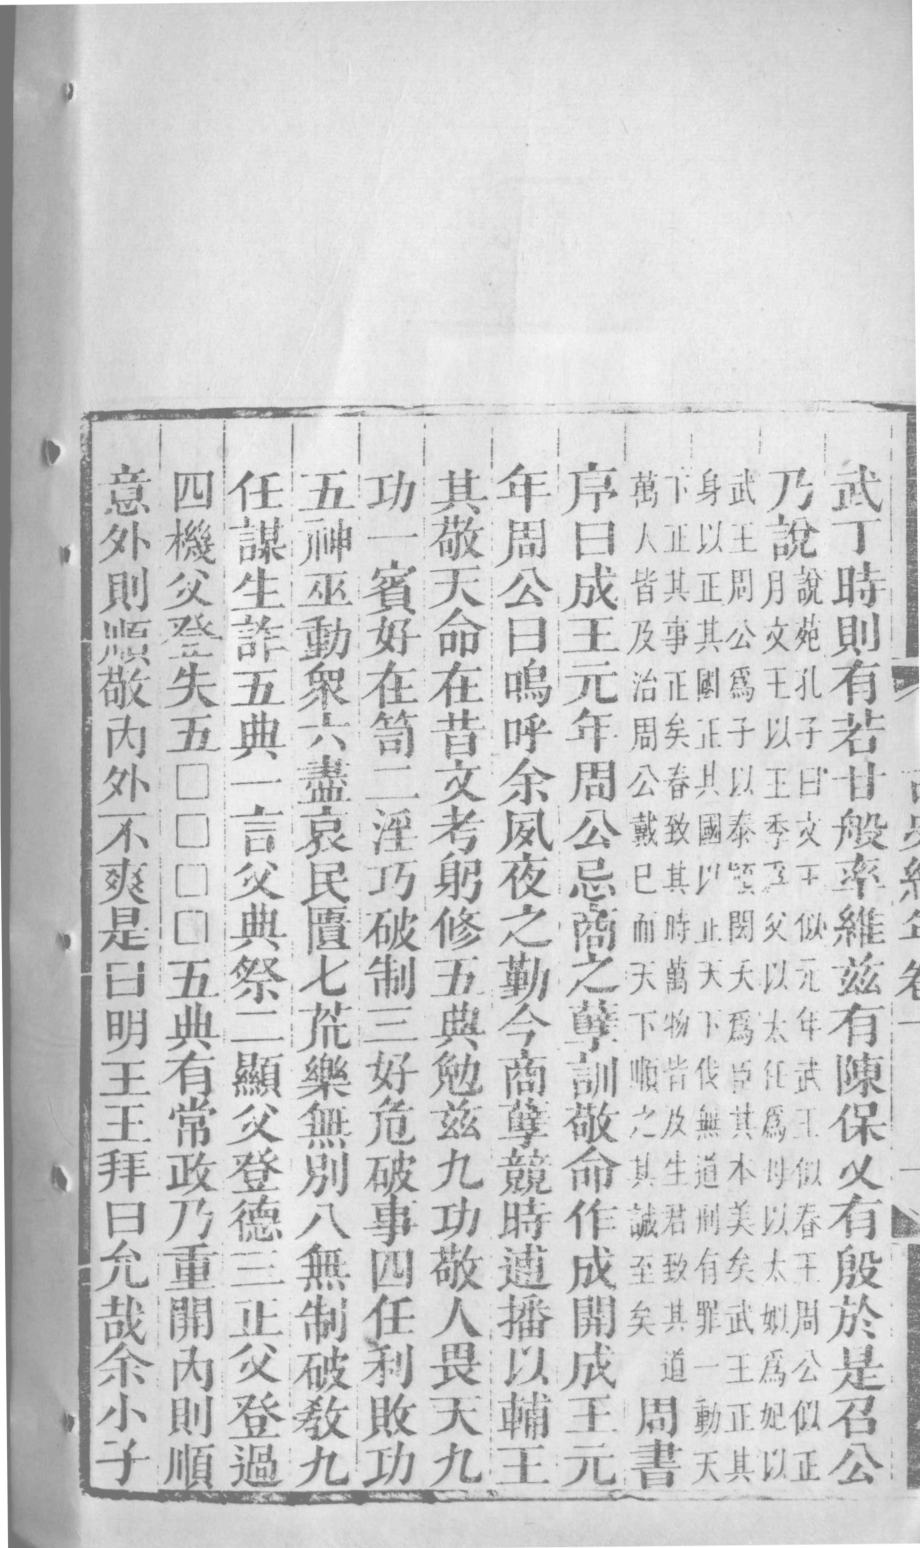 武丁時則有若甘般率維茲有陳保乂有殷於是召公
乃說
說苑孔子曰文王似元年武王似春王周公似正
月文王以王季爲父以太任爲母以太姒爲妃以
武王周公爲子以泰顚閎夭爲臣其本美矣武王正其
身以正其國正其國以正天下伐無道刑有罪一動天
下正其事正矣春致其時萬物皆及生君致其道
萬人皆及治周公戴巳而天下順之其誠至矣
周書
序曰成王元年周公忌商之孽訓敬命作成開成王元
年周公曰嗚呼余夙夜之勤今商孽競時逋播以輔王
其敬天命在昔文考躬修五典勉茲九功敬人畏天九
功一賓好在笥二淫巧破制三好危破事四任利敗功
五神巫動衆六盡哀民匱七荒樂無別八無制破敎九
任謀生詐五典一言父典祭二顯父登德三正父登過
四機父登失五□□□□五典有常政乃重開內則順
意外則順敬內外不爽是曰明王王拜曰允哉余小子